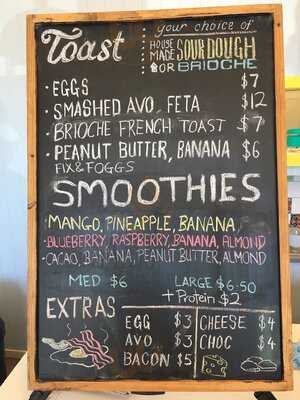 Toast : your choice of
HOUSE MADE SOURDOUGH
OR BRIOCHE
• EGGS $7
• SMASHED AVO, FETA $12
• BRIOCHE FRENCH TOAST $7
• PEANUT BUTTER, BANANA $6
FIX & FOGGS
SMOOTHIES
• MANGO, PINEAPPLE, BANANA
• BLUEBERRY, RASPBERRY, BANANA, ALMOND
• CACAO, BANANA, PEANUT BUTTER, ALMOND
MED $6 LARGE $6.50
+ Protein $2
EXTRAS
EGG $3 CHEESE $4
AVO $3 CHOC $4
BACON $5